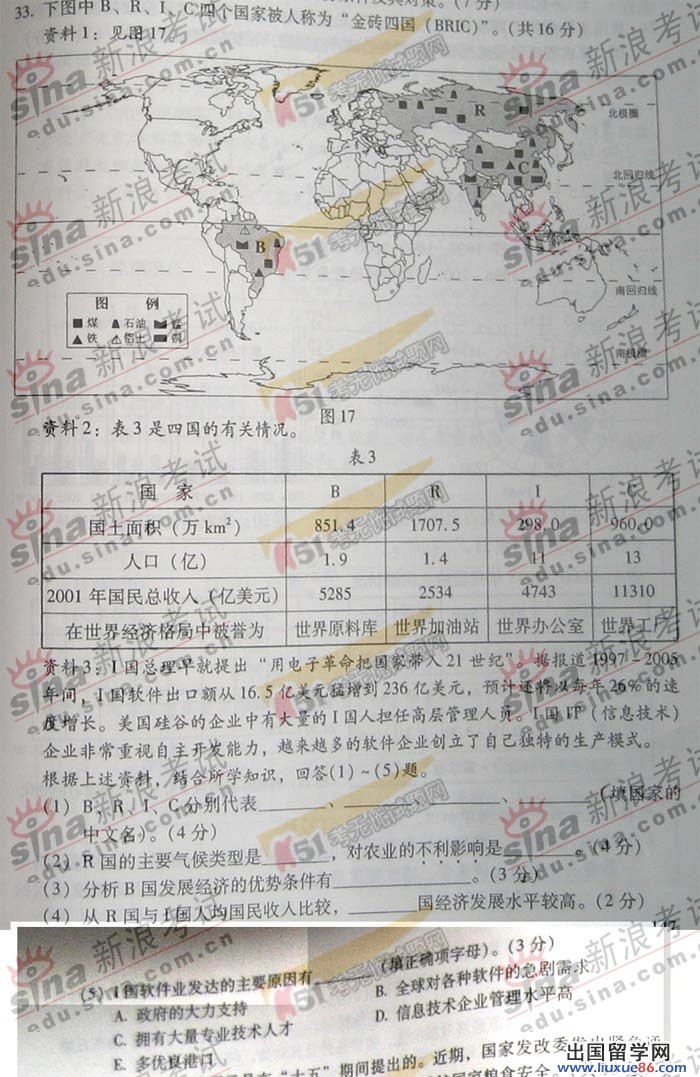 33. 下图中 B、R、I、C四个国家被人称为“金砖四国（BRIC）”。（共16分）
资料1：见图17。
R
北极圈
北回归线
C
I
B
图 例
煤 石油 锰
铁 铝土 铜
南回归线
南极圈
图17
资料2：表3是四国的有关情况。
表3
国 家 B R I C
国土面积（万 km²） 851.4 1707.5 298.0 960.0
人口（亿） 1.9 1.4 11 13
2001 年国民总收入（亿美元） 5285 2534 4743 11310
在世界经济格局中被誉为 世界原料库 世界加油站 世界办公室 世界工厂
资料3：I国总理早就提出“用电子革命把国家带入21世纪”。据报道1997－2005
年间，I国软件出口额从16.5亿美元猛增到236亿美元，预计还将以每年26%的速
度增长。美国硅谷的企业中有大量的I国人担任高层管理人员。I国IT（信息技术）
企业非常重视自主开发能力，越来越多的软件企业创立了自己独特的生产模式。
根据上述资料，结合所学知识，回答(1)～(5)题。
(1) B、R、I、C分别代表________、________、________、________(填国家的
中文名)。(4分)
(2) R国的主要气候类型是______，对农业的不利影响是______。(4分)
(3) 分析B国发展经济的优势条件有____________。(3分)
(4) 从R国与I国人均国民收入比较，______国经济发展水平较高。(2分)
147
(5) I国软件业发达的主要原因有______(填正确项字母)。(3分)
A. 政府的大力支持 B. 全球对各种软件的急剧需求
C. 拥有大量专业技术人才 D. 信息技术企业管理水平高
E. 多优良港口
“十五”期间提出的。近期，国家发改委发出紧急通
新浪考试
sina
edu.sina.com.cn
K51
考元试题网
出国留学网
www.liuxue86.com